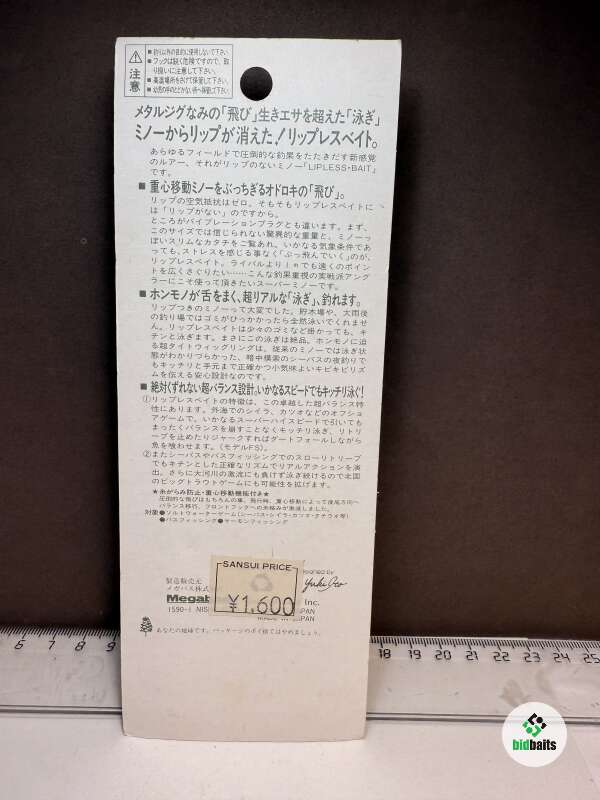 注意
■釣り以外の目的に使用しないで下さい
■フックは鋭く危険ですので、取
り扱いに注意して下さい。
■高温場所をさけて保管して下さい。
■幼児の手のとどかない所へ保管して下さい。
メタルジグなみの「飛び」生きエサを超えた「泳ぎ」
ミノーからリップが消えた!リップレスベイト。
あらゆるフィールドで圧倒的な釣果をたたきだす新感覚
のルアー、それがリップのないミノー「LIPLESS・BAIT」
です。
■重心移動ミノーをぶっちぎるオドロキの「飛び」。
リップの空気抵抗はゼロ。そもそもリップレスベイトに
は「リップがない」のですから。
ところがバイブレーションプラグとも違います。まず、
このサイズでは信じられない驚異的な重量と、ミノーっ
ぽいスリムなカタチをご覧あれ。いかなる気象条件であ
っても、ストレスを感じる事なく「ぶっ飛んでいく」のが、
リップレスベイト。ライバルより1mでも遠くのポイン
トを広くさぐりたい……こんな釣果重視の実戦派アング
ラーにこそ使って頂きたいスーパーミノーです。
■ホンモノが舌をまく、超リアルな「泳ぎ」、釣れます。
リップつきのミノーって大変でした。貯木場や、大雨後
の釣り場ではゴミがひっかかったら全然泳いでくれませ
ん。リップレスベイトは少々のゴミなど掛かっても、キ
チンと泳ぎます。まさにこの泳ぎは絶品。ホンモノに迫
る超タイトウィッグリングは、従来のミノーでは泳ぎ状
態がわかりづらかった、暗中模索のシーバスの夜釣りで
もキッチリと手元まで正確かつ小気味よいキビキビリズ
ムを伝える安心設計なのです。
■絶対くずれない超バランス設計。いかなるスピードでもキッチリ泳ぐ!
①リップレスベイトの特徴は、この卓越した超バランス特
性にあります。外海でのシイラ、カツオなどのオフショ
アゲームで、いかなるスーパーハイスピードで引いても
まったくバランスを崩すことなくキッチリ泳ぎ、リトリ
ーブを止めたりジャークすればダートフォールしながら
魚を喰わせます。(モデルFS)。
②またシーバスやバスフィッシングでのスローリトリーブ
でもキチンとした正確なリズムでリアルアクションを演
出。さらに大河川の激流にも負けず泳ぎ続けるので北国
のビッグトラウトゲームにも可能性を拡げます。
★糸がらみ防止・重心移動機能付き★
圧倒的な飛びはもちろんの事、飛行時、重心移動によって後尾方向へ
バランス移行、フロントフックへの糸絡みが激減しました。
対象●ソルトウォーターゲーム(シーバス・シイラ・カツオ・タチウオ等)
●バスフィッシング●サーモンフィッシング
SANSUI PRICE
¥1,600
製造販売元
メガバス株式
Megab
Inc.
1590-1 NISH
JAPAN
MADE IN JAPAN
signed by
Yuki Ito
あなたの地球です。パッケージのポイ捨てはやめましょう。
6 7 8 9 10
18 19 20 21 22 23 24 25
bidbaits